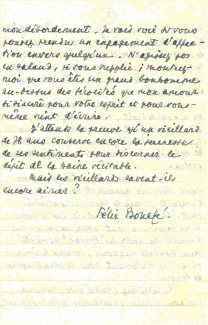 mon débordement. Je vais voir si vous
pouvez prendre un engagement d'affec-
tion envers quelqu'un. N'agissez pas
en salaud, je vous supplie, montrez
moi que vous êtes un grand bonhomme
au-dessus des que mon amour
pour votre esprit et pour vous-
même vient d'écrire.
J'attends la preuve qu'un vieillard
de 78 ans conserve encore la
de ses sentiments pour discerner le
dépit de la haine véritable.
Mais les vieillards savent-ils
encore aimer ?
Félix